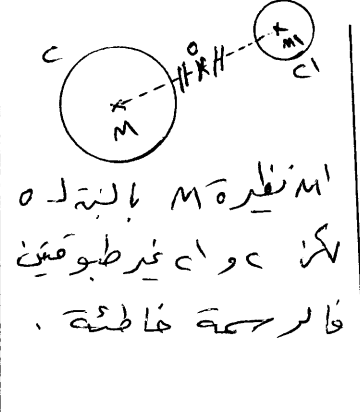 C
O
M1
C1
M
M1 نظيرة M بالنسبة لـ O
لكن C و C1 غير طبوقتين
فالرسمة خاطئة .